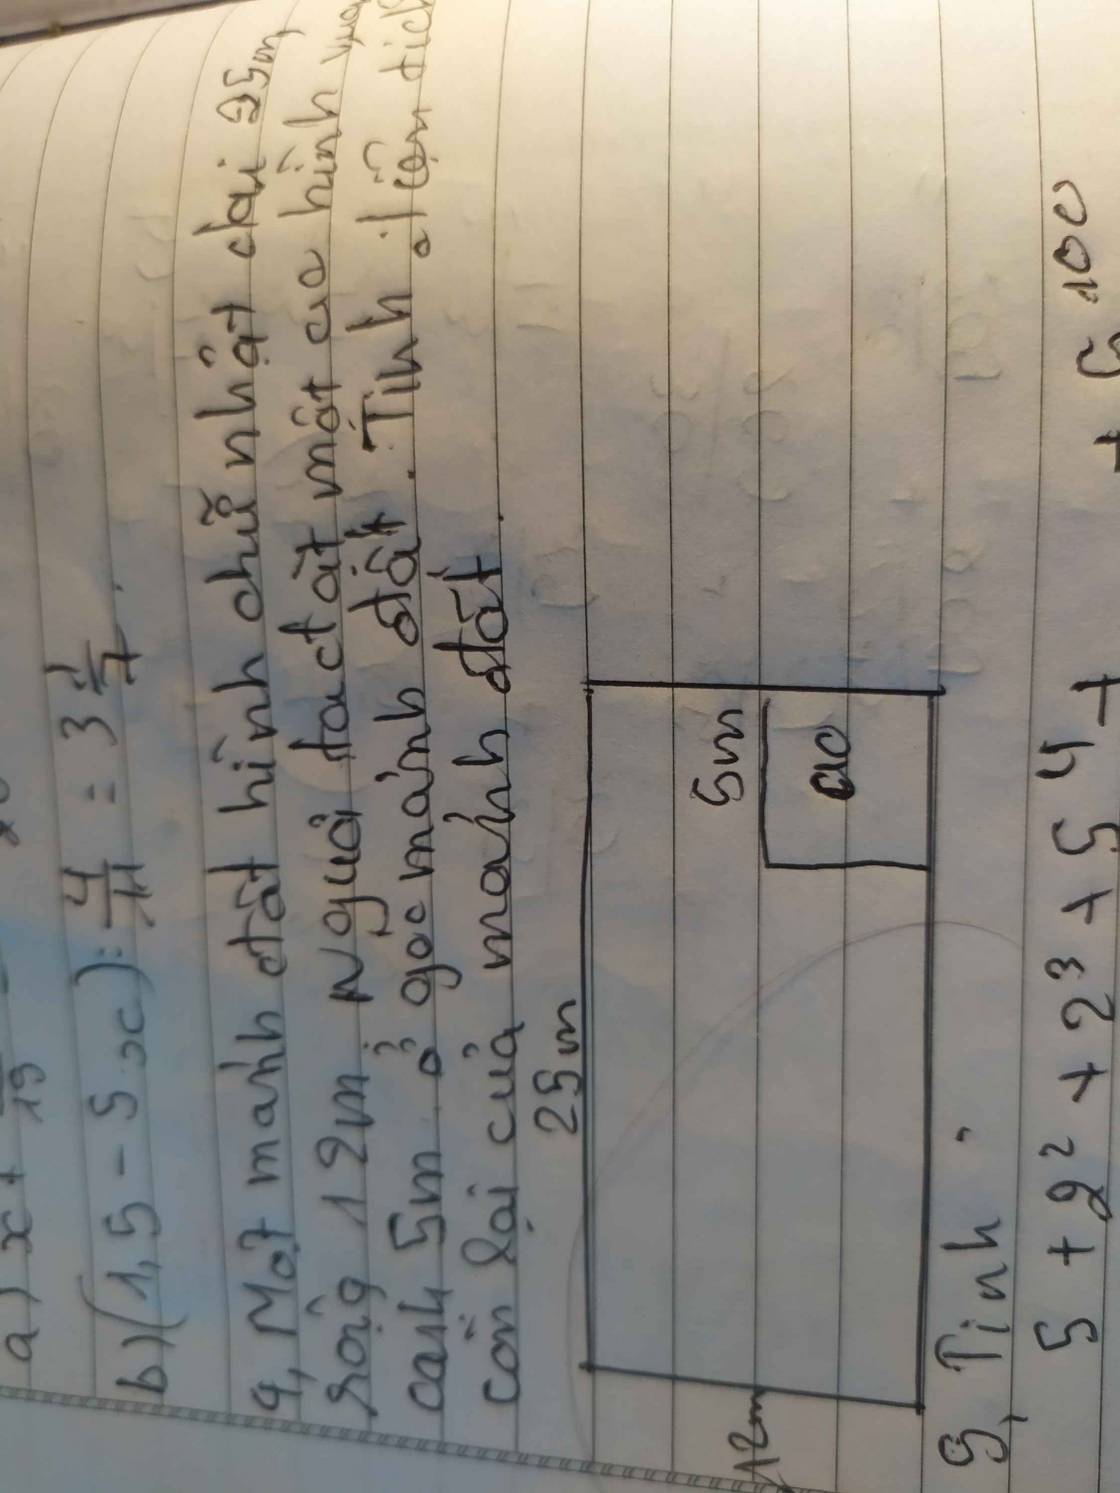 a) x +
19
b) (1,5 - 5x) : 4/11 = 3 1/7.
4, Một mảnh đất hình chữ nhật dài 25m,
rộng 12m Người ta cắt một ao hình
cạnh 5m ở góc mảnh đất. Tính
còn lại của mảnh đất.
25m
12m
5m
ao
5, Tính.
5 + 2² + 2³ + 5⁴ +